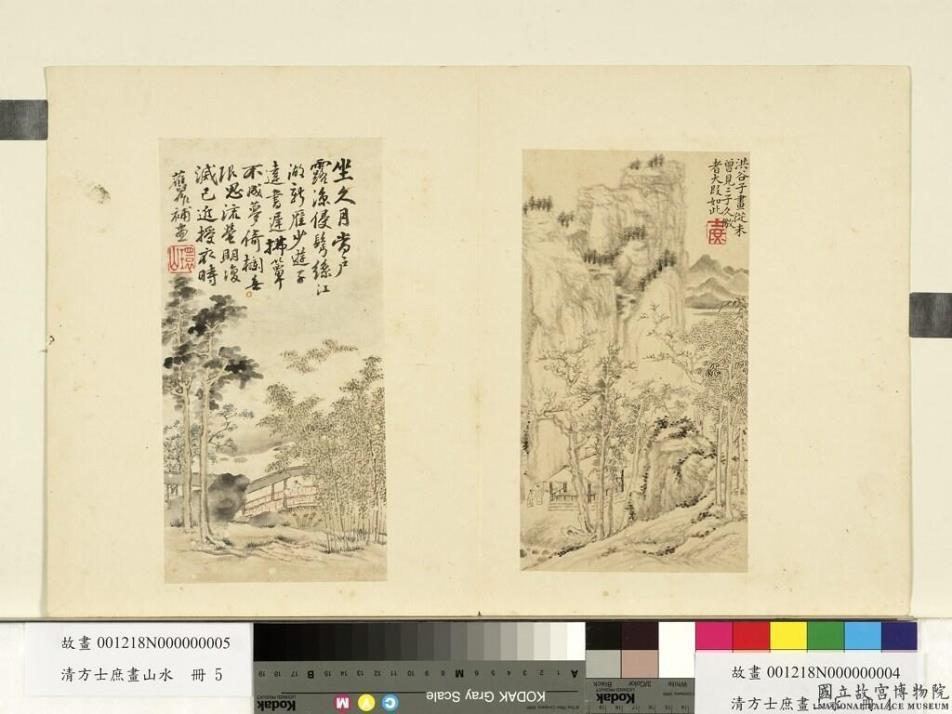 洪谷子畫從未
曾見之子久倣
者大段如此
坐久月當戶
露涼侵鬢絲江
湖新雁少遊子
遠書遲拂簟
不成夢倚欄無
限思流螢明復
滅已近授衣時
舊作補畫
環山
故畫 001218N000000005
清方士庶畫山水 冊 5
KODAK Gray Scale
Kodak
LICENSED PRODUCT
A 1 2 3 4 5 6 M 8 9 10 11 12 13 14 15 B 17 18 19
C Y M
3/Color Black
White
Kodak
LICENSED PRODUCT
故畫 001218N000000004
清方士庶畫山
國立故宮博物院
NATIONAL PALACE MUSEUM